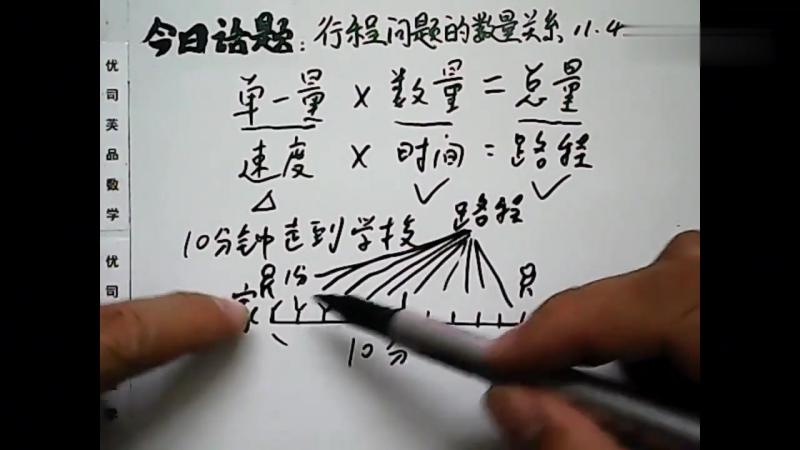 今日话题：行程问题的数量关系 11.4
单一量 × 数量 = 总量
速度 × 时间 = 路程
10分钟走到学校
路程
1分
家
10分
优司英品数学
优司
学